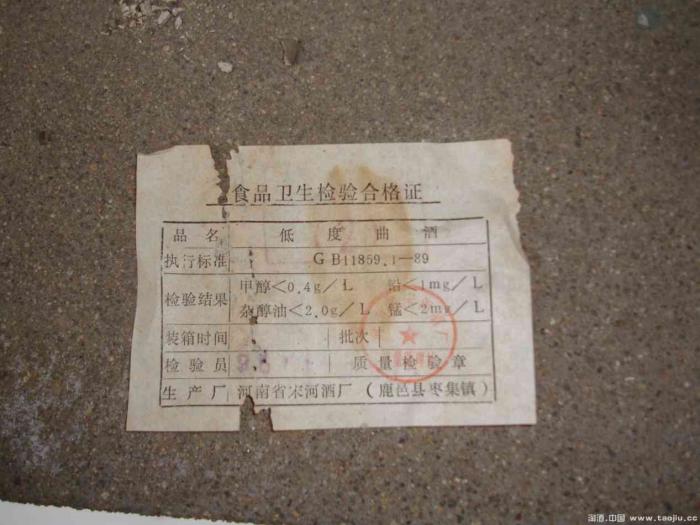 食品卫生检验合格证
品名 低度曲酒
执行标准 GB11859.1—89
检验结果 甲醇<0.4g/L 铅<1mg/L
杂醇油<2.0g/L 锰<2mg/L
装箱时间 批次
检验员 质量检验章
生产厂 河南省宋河酒厂（鹿邑县枣集镇）
淘酒.中国 www.taojiu.cc